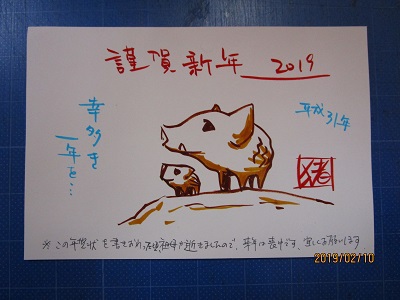 謹賀新年 2019
幸多き
一年を…
平成31年
猪
※この年賀状を書きおわった後祖母が逝きましたので、本年は喪中です。宜しくお願いします
2019/02/10